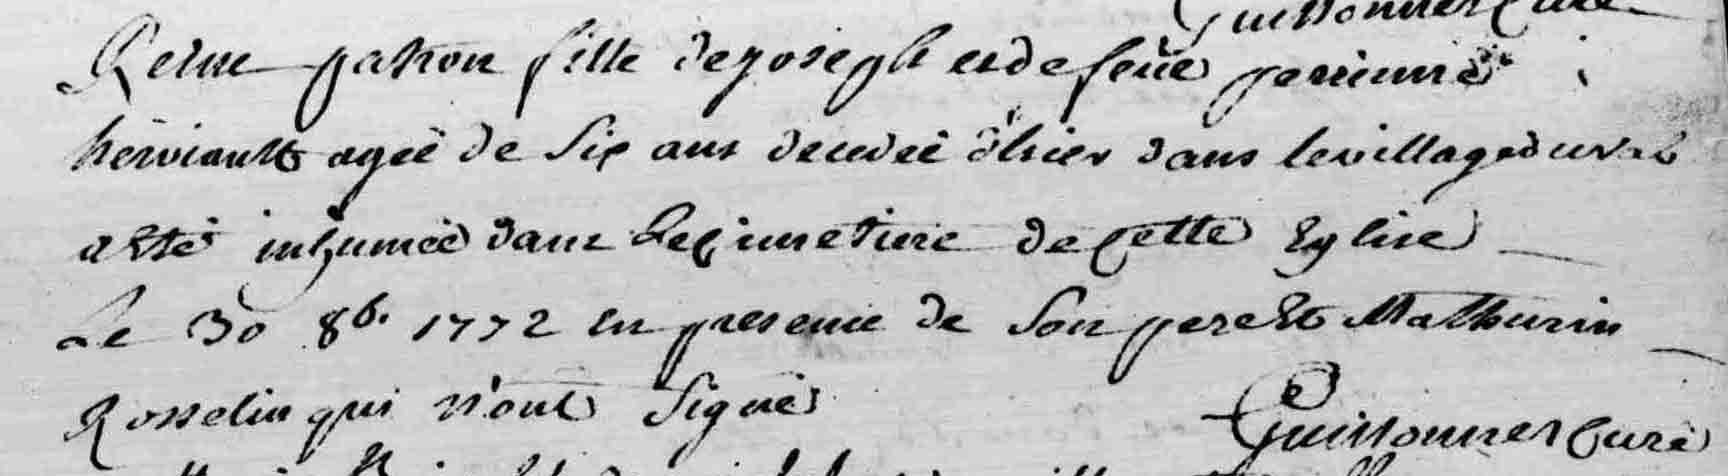 Guissonnet Curé
Reine patron fille de joseph et de feüe perinne
herviault ageé de Six ans decedeé d'hier dans le village du val
a Eté inhumeé dans Le Cimetiere de Cette Eglise
Le 30 8b. 1772 En presence de Son pere Et Mathurin
Rosselin qui n'ont Signé
Guissonnet Curé